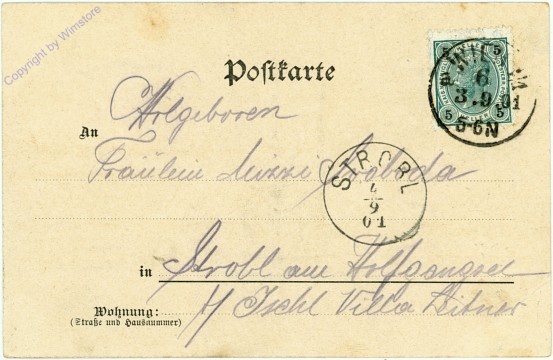 Copyright by Wimstore
Postkarte
5 5
WIEN
6
3.9.01
5-6N
5 5
Wolgeboren
An Fräulein Mizzi Svoboda
STROBL
4
9
01
in Strobl am Wolfgangsee
Wohnung: Ischl Villa Leitner
(Straße und Hausnummer)